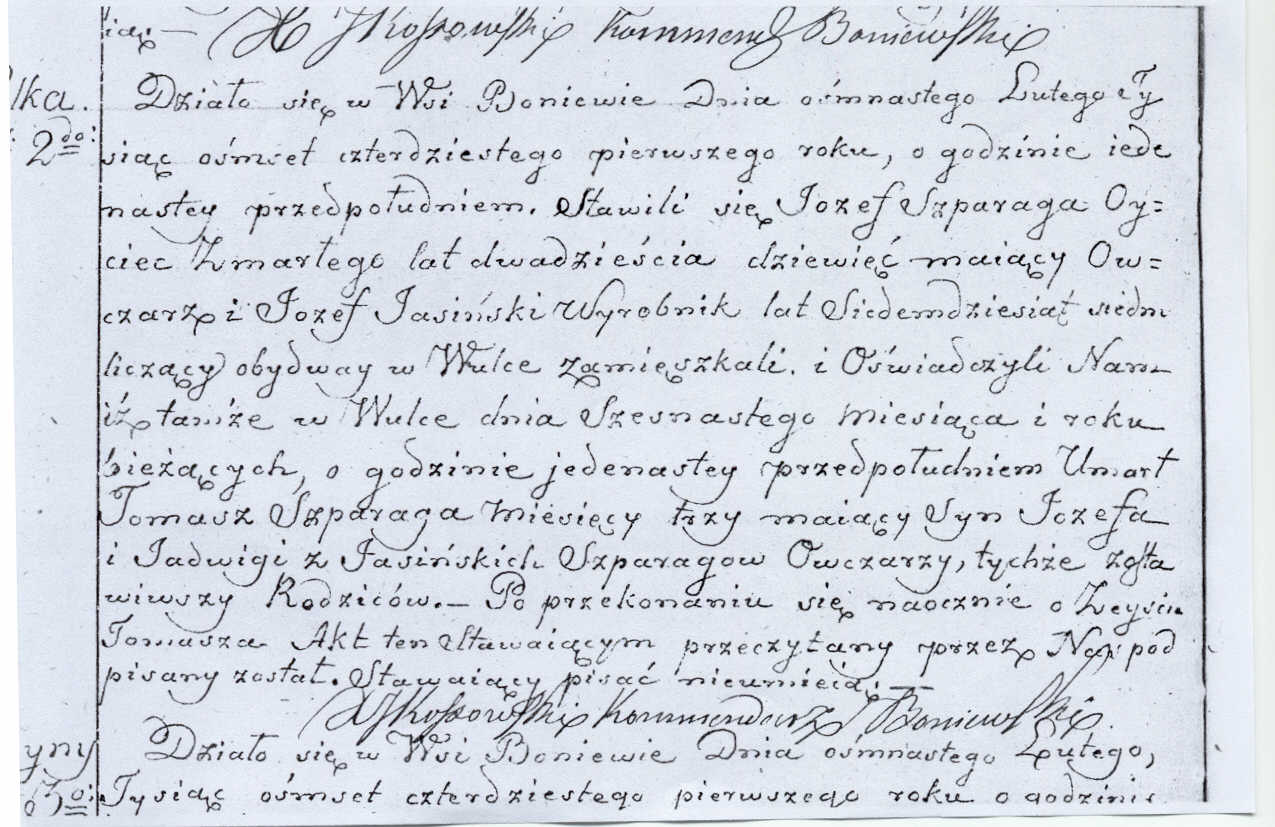 iąę —
X JKossowski Kommend Boniewski
lka. Działo się w Wsi Boniewie Dnia ośmnastego Lutego Ty
2do: siąc ośmset czterdziestego pierwszego roku, o godzinie iede
nastey przedpołudniem. Stawili się Jozef Szparaga Oy=
ciec Zmarłego lat dwadzieścia dziewięć maiący Ow=
czarz i Jozef Jasiński Wyrobnik lat Siedemdziesiąt siedm
liczący obydway w Wulce zamięszkali. i Oświadczyli Nam
iż tamże w Wulce dnia Szesnastego Miesiąca i roku
bieżących, o godzinie jedenastey przedpołudniem Umarł
Tomasz Szparaga Miesięcy trzy maiący Syn Jozefa
i Jadwigi z Jasińskich Szparagow Owczarzy, tychże zosta
wiwszy Rodziców. — Po przekonaniu się naocznie o Zeyściu
Tomasza Akt ten Stawaiącym przeczytany przez Nas pod
pisany został. Stawaiący pisać nieumieią. —
XJKossowski Kommendarz Boniewski
yny Działo się w Wsi Boniewie Dnia ośmnastego Lutego,
3o: Tysiąc ośmset czterdziestego pierwszego roku o godzinie